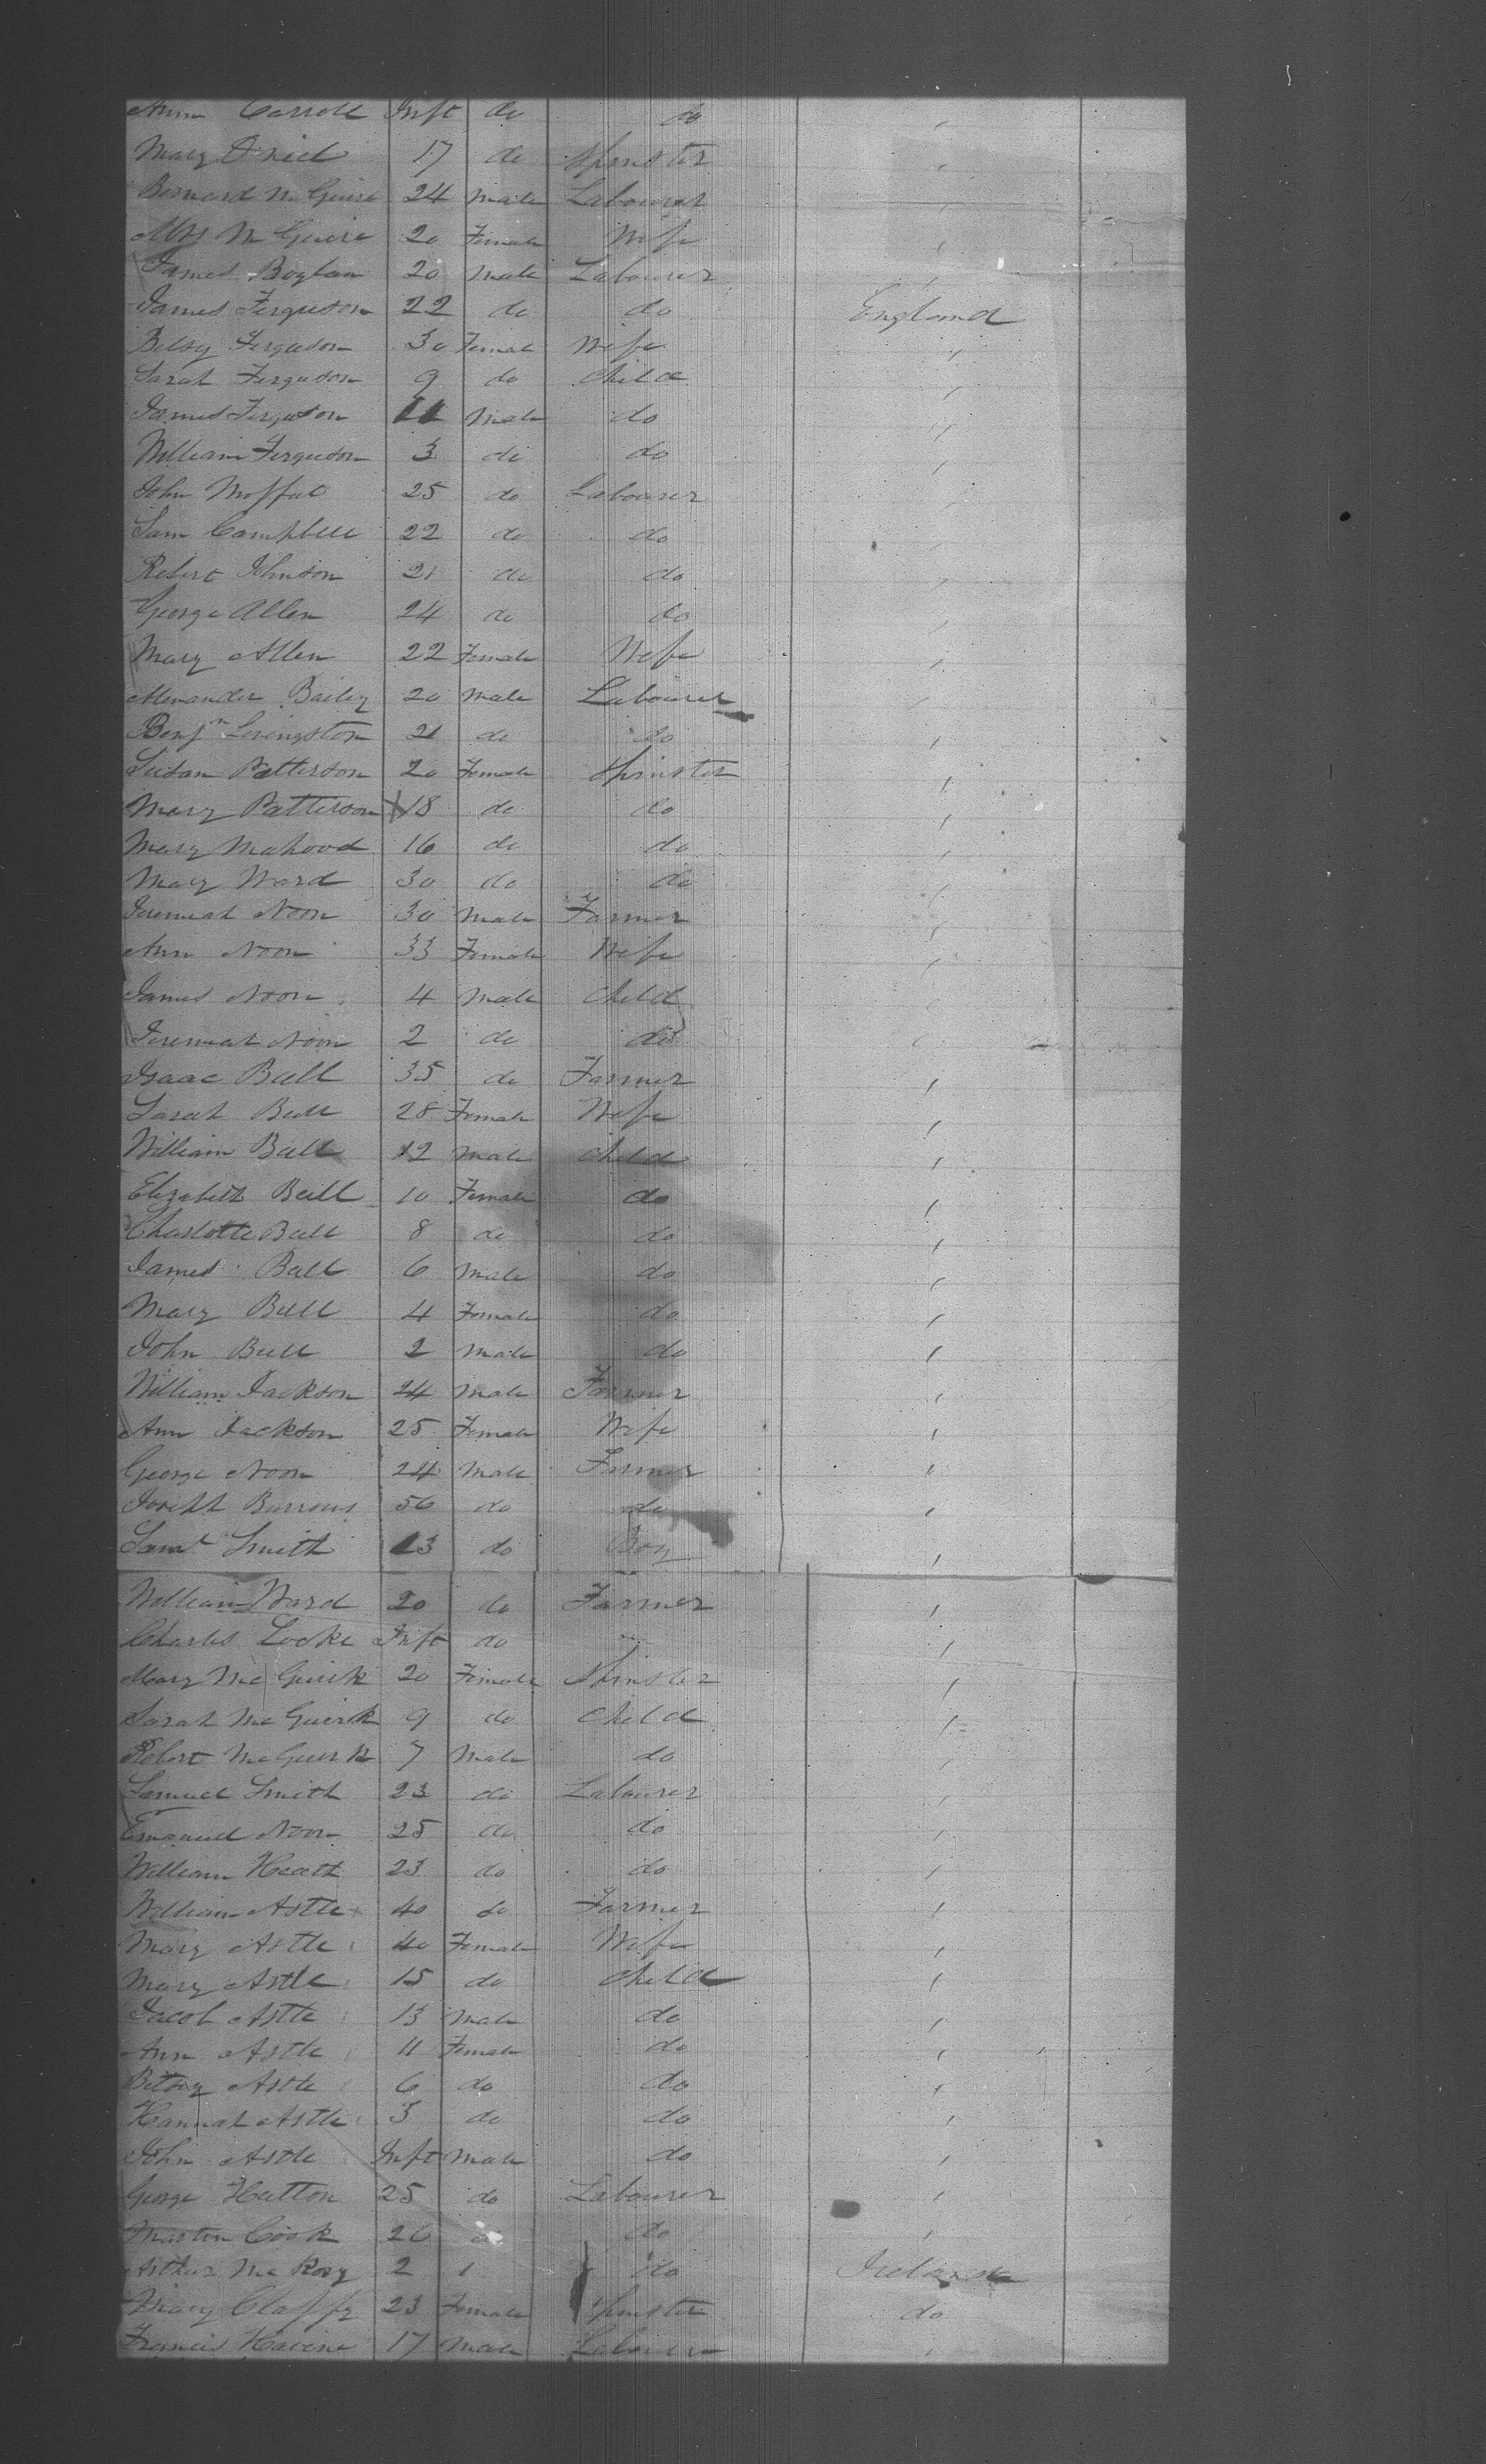 Ann Carroll Inft do do
Mary O'Neil 17 do Spinster
Bernard McGuire 24 Male Labourer
Mrs McGuire 20 Female Wife
James Boylan 20 Male Labourer
James Ferguson 22 do do England
Betsy Ferguson 30 Female Wife
Sarah Ferguson 9 do Child
James Ferguson 11 Male do
William Ferguson 3 do do
John Moffat 25 do Labourer
Sam Campbell 22 do do
Robert Johnson 21 do do
George Allen 24 do do
Mary Allen 22 Female Wife
Alexander Bailey 20 Male Labourer
Benjn Livingston 21 do do
Susan Patterson 20 Female Spinster
Mary Patterson 18 do do
Mary Mahood 16 do do
Mary Ward 30 do do
Jeremiah Noon 30 Male Farmer
Ann Noon 33 Female Wife
James Noon 4 Male Child
Jeremiah Noon 2 do do
Isaac Bull 35 do Farmer
Sarah Bull 28 Female Wife
William Bull 12 Male Child
Elizabeth Bull 10 Female do
Charlotte Bull 8 do do
James Bull 6 Male do
Mary Bull 4 Female do
John Bull 2 Male do
William Jackson 24 Male Farmer
Ann Jackson 25 Female Wife
George Noon 24 Male Farmer
Joseph Burrows 56 do do
Saml Smith 13 do Boy
William Ward 20 do Farmer
Charles Locke Inft do
Mary McGuirk 20 Female Spinster
Sarah McGuirk 9 do Child
Robert McGuirk 7 Male do
Samuel Smith 23 do Labourer
Emanuel Noon 25 do do
William Heath 23 do do
William Astle 40 do Farmer
Mary Astle 40 Female Wife
Mary Astle 15 do Child
Jacob Astle 13 Male do
Ann Astle 11 Female do
Betsy Astle 6 do do
Hannah Astle 3 do do
John Astle Inft Male do
George Hutton 25 do Labourer
Martin Cook 26 do do
Arthur McRory 2 do Ireland
Mary Claffy 23 Female Spinster do
Francis 17 Male Labourer